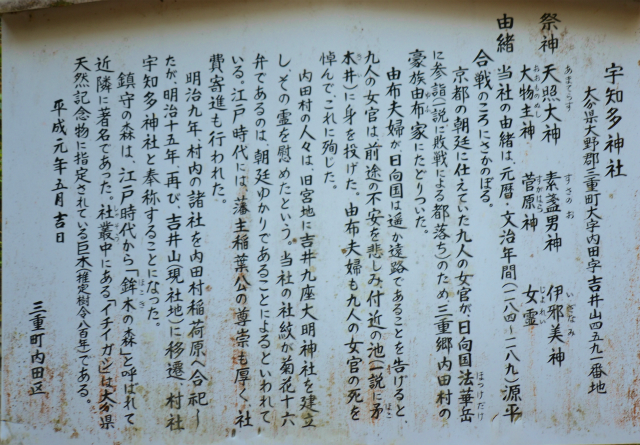 宇知多神社
大分県大野郡三重町大字内田字吉井山四五九一番地
祭神 天照大神 素盞男神 伊邪美神
あまてらす すさのお いざなみ
大物主神 菅原神 女霊
おおものぬし すがはら じょれい
由緒 当社の由緒は、元暦・文治年間(一一八四~一一八九)源平
合戦のころにさかのぼる。
京都の朝廷に仕えていた九人の女官が、日向国法華岳
ほっけだけ
に参詣(一説に敗戦による都落ち)のため三重郷内田村の
豪族由布家にたどりついた。
ゆふ
由布夫婦が日向国は遥か遠路であることを告げると、
九人の女官は前途の不安を悲しみ、付近の池(一説に矛
ほこ
本井)に身を投げた。由布夫婦も九人の女官の死を
悼んで、これに殉じた。
内田村の人々は旧宮地に吉井九座大明神社を建立
し、その霊を慰めたという。当社の社紋が菊花十六
弁であるのは、朝廷ゆかりであることによるといわれて
いる。江戸時代には、藩主稲葉公の尊崇も厚く、社
費寄進も行われた。
明治九年、村内の諸社を内田村稲荷原へ合祀し
たが、明治十五年、再び、吉井山(現社地)に移遷、村社
宇知多神社と奉称することになった。
鎮守の森は、江戸時代から「鉾木の森」と呼ばれて
ほこき
近隣に著名であった。社叢中にある「イチイガシ」は大分県
しゃそう
天然記念物に指定されている巨木(推定樹令八百年)である。
平成元年五月吉日
三重町内田区